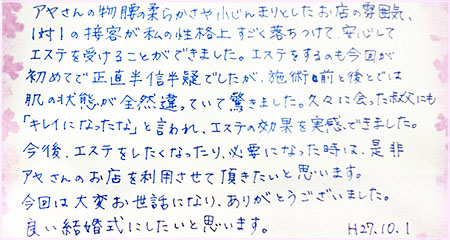 アヤさんの物腰の柔らかさや小じんまりとしたお店の雰囲気、
1対1の接客が私の性格上すごく落ちつけて、安心して
エステを受けることができました。エステをするのも今回が
初めてで正直半信半疑でしたが、施術前と後とでは
肌の状態が全然違っていて驚きました。久々に会った叔父にも
「キレイになったな」と言われ、エステの効果を実感できました。
今後、エステをしたくなったり、必要になった時は、是非
アヤさんのお店を利用させて頂きたいと思います。
今回は大変お世話になり、ありがとうございました。
良い結婚式にしたいと思います。 H27.10.1